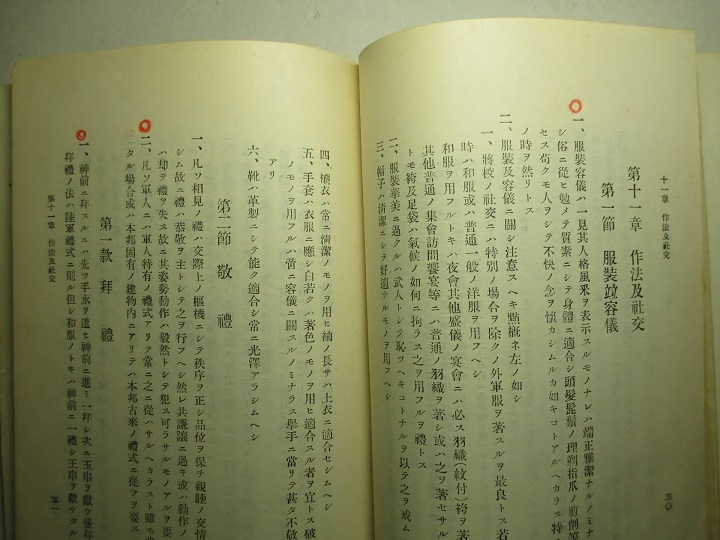 十一章 作法及社交
第十一章 作法及社交
第一節 服裝竝容儀
一、服裝容儀ハ一見其人格風釆ヲ表示スルモノナレハ端正雅潔ナルノミナ
シ俗ニ從ヒ勉メテ質素ニシテ身體ニ適合シ頭髮髭鬚ノ理剃指爪ノ剪削等
セス苟クモ人ヲシテ不快ノ念ヲ懷カシムルカ如キコトアルヘカラス特
ノ時ヲ然リトス
二、服裝及容儀ニ關シ注意スヘキ點概ネ左ノ如シ
一、將校ノ社交ニハ特別ノ場合ヲ除クノ外軍服ヲ著スルヲ最良トス若
時ハ和服或ハ普通一般ノ洋服ヲ用フヘシ
和服ヲ用フルトキハ夜會其他盛儀ノ宴會ニハ必ス羽織(紋付)袴ヲ著
其他普通ノ集會訪問饗宴等ニハ普通ノ羽織ヲ著シ或ハ之ヲ著セサル
トモ袴及足袋ハ氣候ノ如何ニ拘ラス之ヲ用フルヲ禮トス
二、服裝華美ニ過クルハ武人トシテ恥ツヘキコトナルヲ以テ之ヲ戒ム
三、帽子ハ淸潔ニシテ好適ナルモノヲ用フヘシ
五〇
四、襯衣ハ常ニ淸潔ノモノヲ用ヒ袖ノ長サハ上衣ニ適合セシムヘシ
五、手套ハ衣服ニ應シ白若クハ著色ノモノヲ用ヒ適合スル者ヲ宜トス破
ノモノヲ用フルハ啻ニ容儀ニ關スルノミナラス擧手ニ當リテ甚タ不敬
アリ
六、靴ハ革製ニシテ能ク適合シ常ニ光澤アラシムヘシ
第二節 敬禮
一、凡ソ相見ノ禮ハ交際上ノ樞機ニシテ秩序ヲ正シ品位ヲ保チ親睦ノ交情
シム故ニ禮ハ恭敬ヲ主トシテ之ヲ行フヘシ然レ共謙讓ニ過キ或ハ動作ノ
ハ却テ禮ヲ失ス故ニ其姿勢動作ハ毅然トシテ犯ス可ラサルモノアルヲ要
二、凡ソ軍人ニハ軍人特有ノ禮式アリテ常ニ之ニ從ハサルヘカラスト雖モ
タル場合或ハ本邦固有ノ建物内ニアリテハ本邦古來ノ禮式ニ從フヲ要ス
第一款 拜禮
一、神前ニ拜スルニハ先ツ手水ヲ遣ヒ神前ニ進ミ一拜シ次ニ玉串ヲ獻ケ後拜
拜禮ノ法ハ陸軍禮式ニ則ル但シ和服ノトキハ神前ニ一禮シ玉串ヲ獻ケタル
第十一章 作法及社交
五一